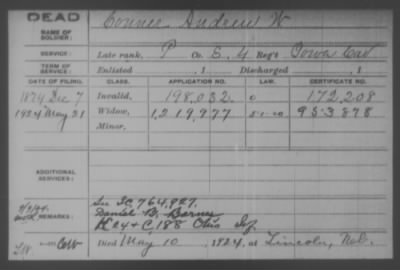 DEAD
NAME OF SOLDIER: Conner Andrew W
SERVICE: Late rank, P Co. E, 4 Reg't Iowa Cav
TERM OF SERVICE: Enlisted , 1 Discharged , 1
DATE OF FILING. CLASS. APPLICATION NO. LAW. CERTIFICATE NO.
1874 Dec 7 Invalid, 198,032. 0 172,208
1924 May 31 Widow, 1,219,977 5-1-20 953878
Minor,
ADDITIONAL SERVICES:
REMARKS: In IC, 764,927.
Daniel B. Barnes
K 24 + C, 188 Ohio Inf
Died May 10, 1924, at Lincoln, Neb.